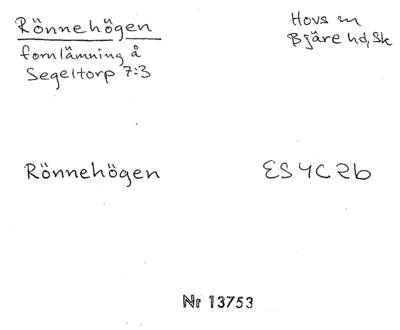 Rönnehögen
fornlämning å
Segeltorp 7:3
Hovs sn
Bjäre hd, Sk
Rönnehögen
ES 4C 2b
Nr 13753